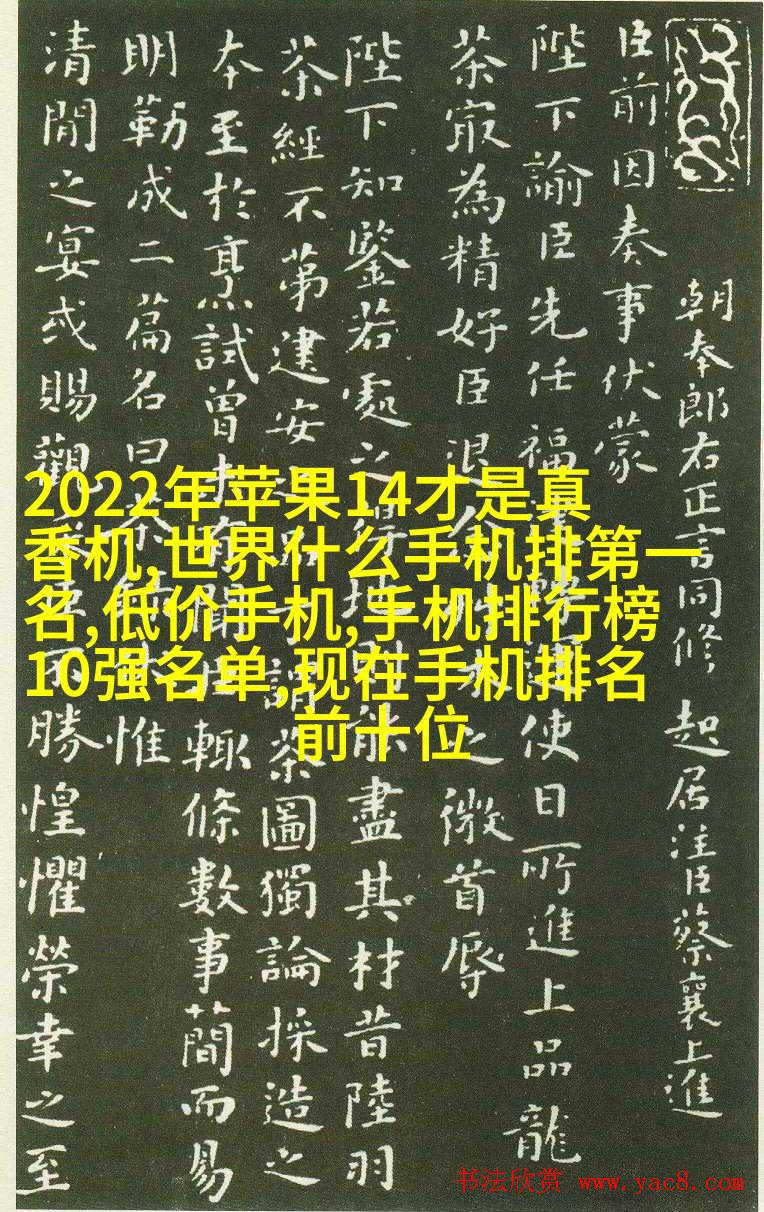 朝奉郎右正言同修起居注臣蔡襄上進
臣前因奏事伏蒙
陛下諭臣先任福使日所進上品龍
茶寂為精好臣退之微首辱
陛下知鑒若處之得地則能盡其材昔陸羽
茶經不第建安品謂茶圖獨論採造之
本至於烹試曾有聞臣輒條數事簡而易
明勒成二篇名曰茶惟
清閒之宴或賜觀臣不勝惶懼榮幸之至
2022年苹果14才是真
香机,世界什么手机排第一
名,低价手机,手机排行榜
10强名单,现在手机排名
前十位
书法欣赏 www.yac8.com